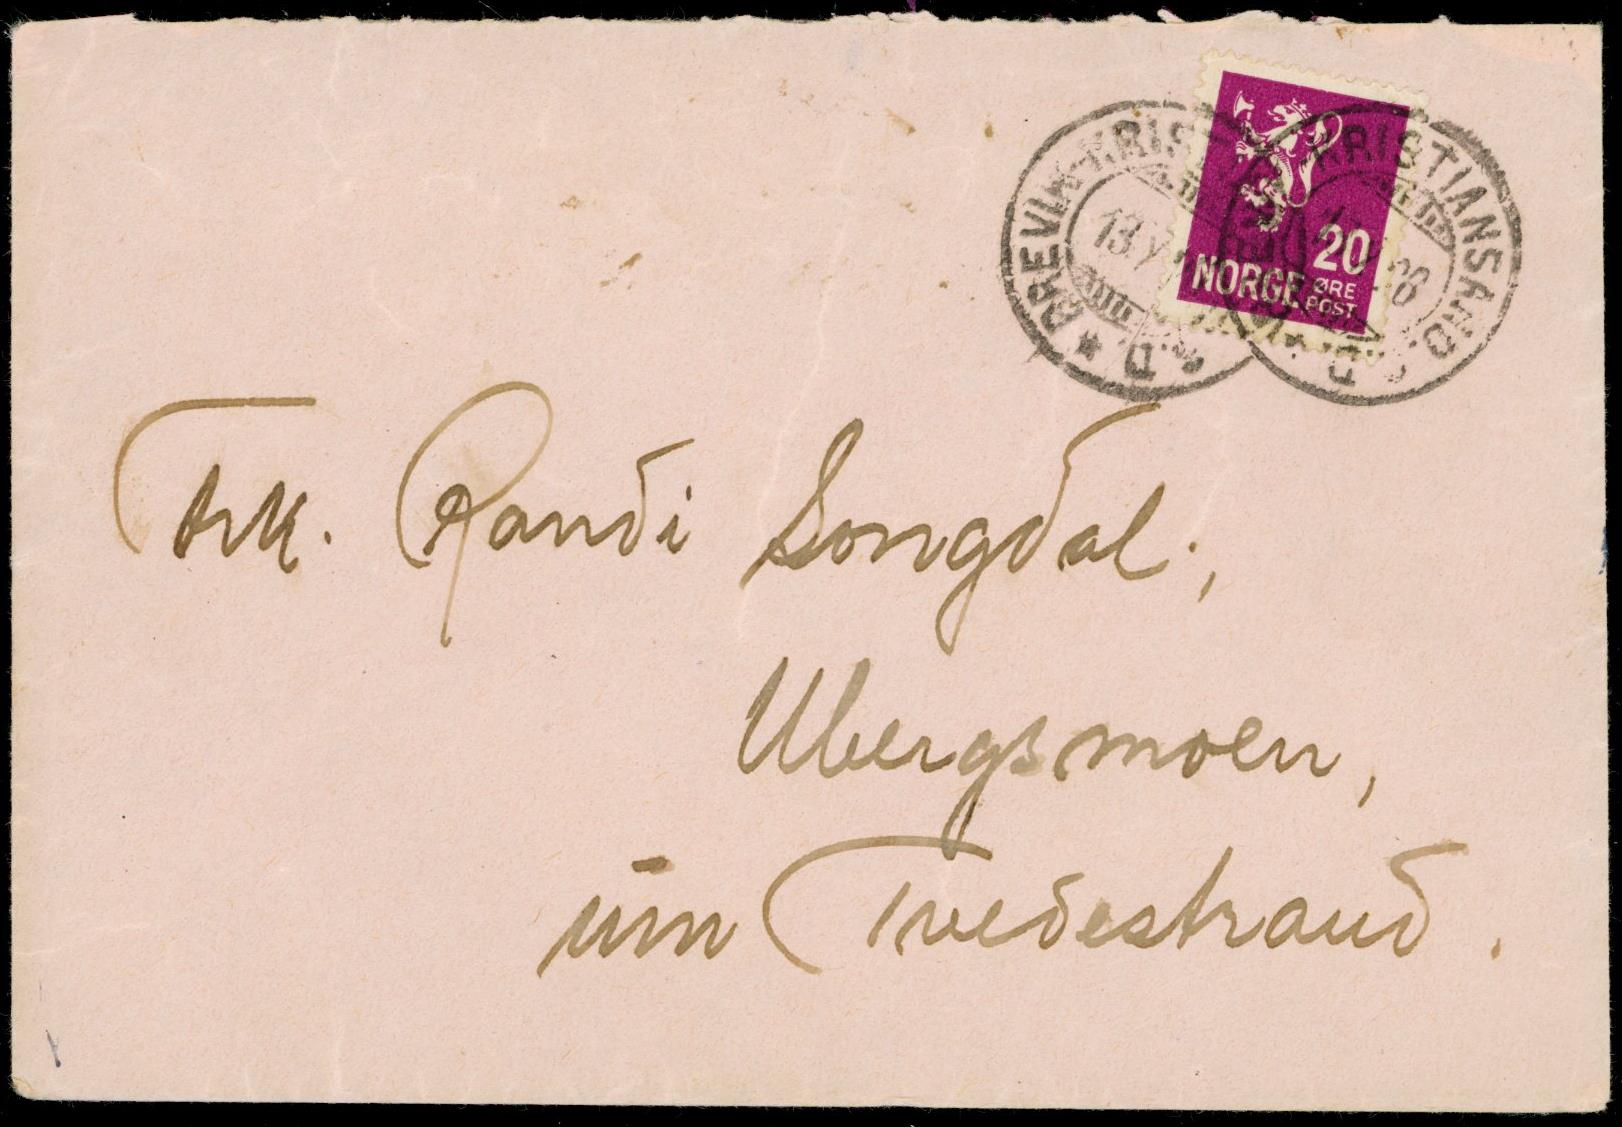 BREVIK-KRIS
13 V
S.D
KRISTIANSAND S.D
26
20
NORGE ØRE
POST
Frk. Randi Songdal,
Ubergsmoen,
um Tvedestrand.